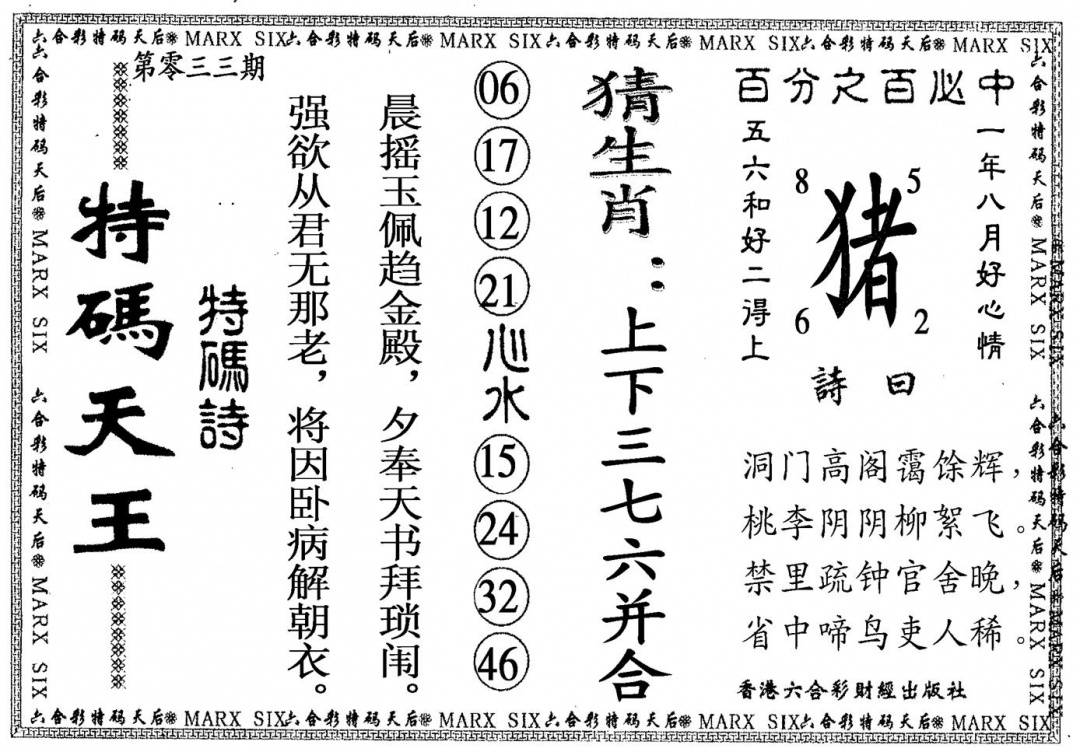 六合彩特码天后❋ MARX SIX六合彩特码天后❋ MARX SIX六合彩特码天后❋ MARX SIX六合彩特码天后❋ MARX SIX
六合彩特码天后❋ MARX SIX 六合彩特码天后❋ MARX SIX
百分之百必中
一年八月好心情
8 5
猪
6 2
五六和好二得上
詩曰
洞门高阁霭馀辉，
桃李阴阴柳絮飞。
禁里疏钟官舍晚，
省中啼鸟吏人稀。
香港六合彩財經出版社
猜生肖：上下三七六并合
06 17 12 21 心水 15 24 32 46
晨摇玉佩趋金殿，夕奉天书拜琐闱。
强欲从君无那老，将因卧病解朝衣。
特碼詩
第零三三期
特碼天王
六合彩特码天后❋ MARX SIX 六合彩特码天后❋ MARX SIX
六合彩特码天后❋ MARX SIX六合彩特码天后❋ MARX SIX六合彩特码天后❋ MARX SIX六合彩特码天后❋ MARX SIX